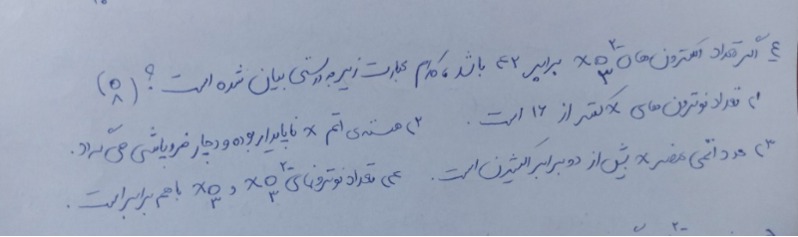 ۴ اگر تعداد الکترون های XO₃²⁻ برابر ۴۲ باشد، کدام عبارت زیر به درستی بیان شده است؟ (₈O)
۱) تعداد نوترون های X کمتر از ۱۶ است. ۲) هسته ی اتم X ناپایدار بوده و دچار فروپاشی می گردد.
۳) عدد اتمی عنصر X بیش از دو برابر اکسیژن است. ۴) تعداد نوترونهای XO₃²⁻ و XO₃ با هم برابر است.